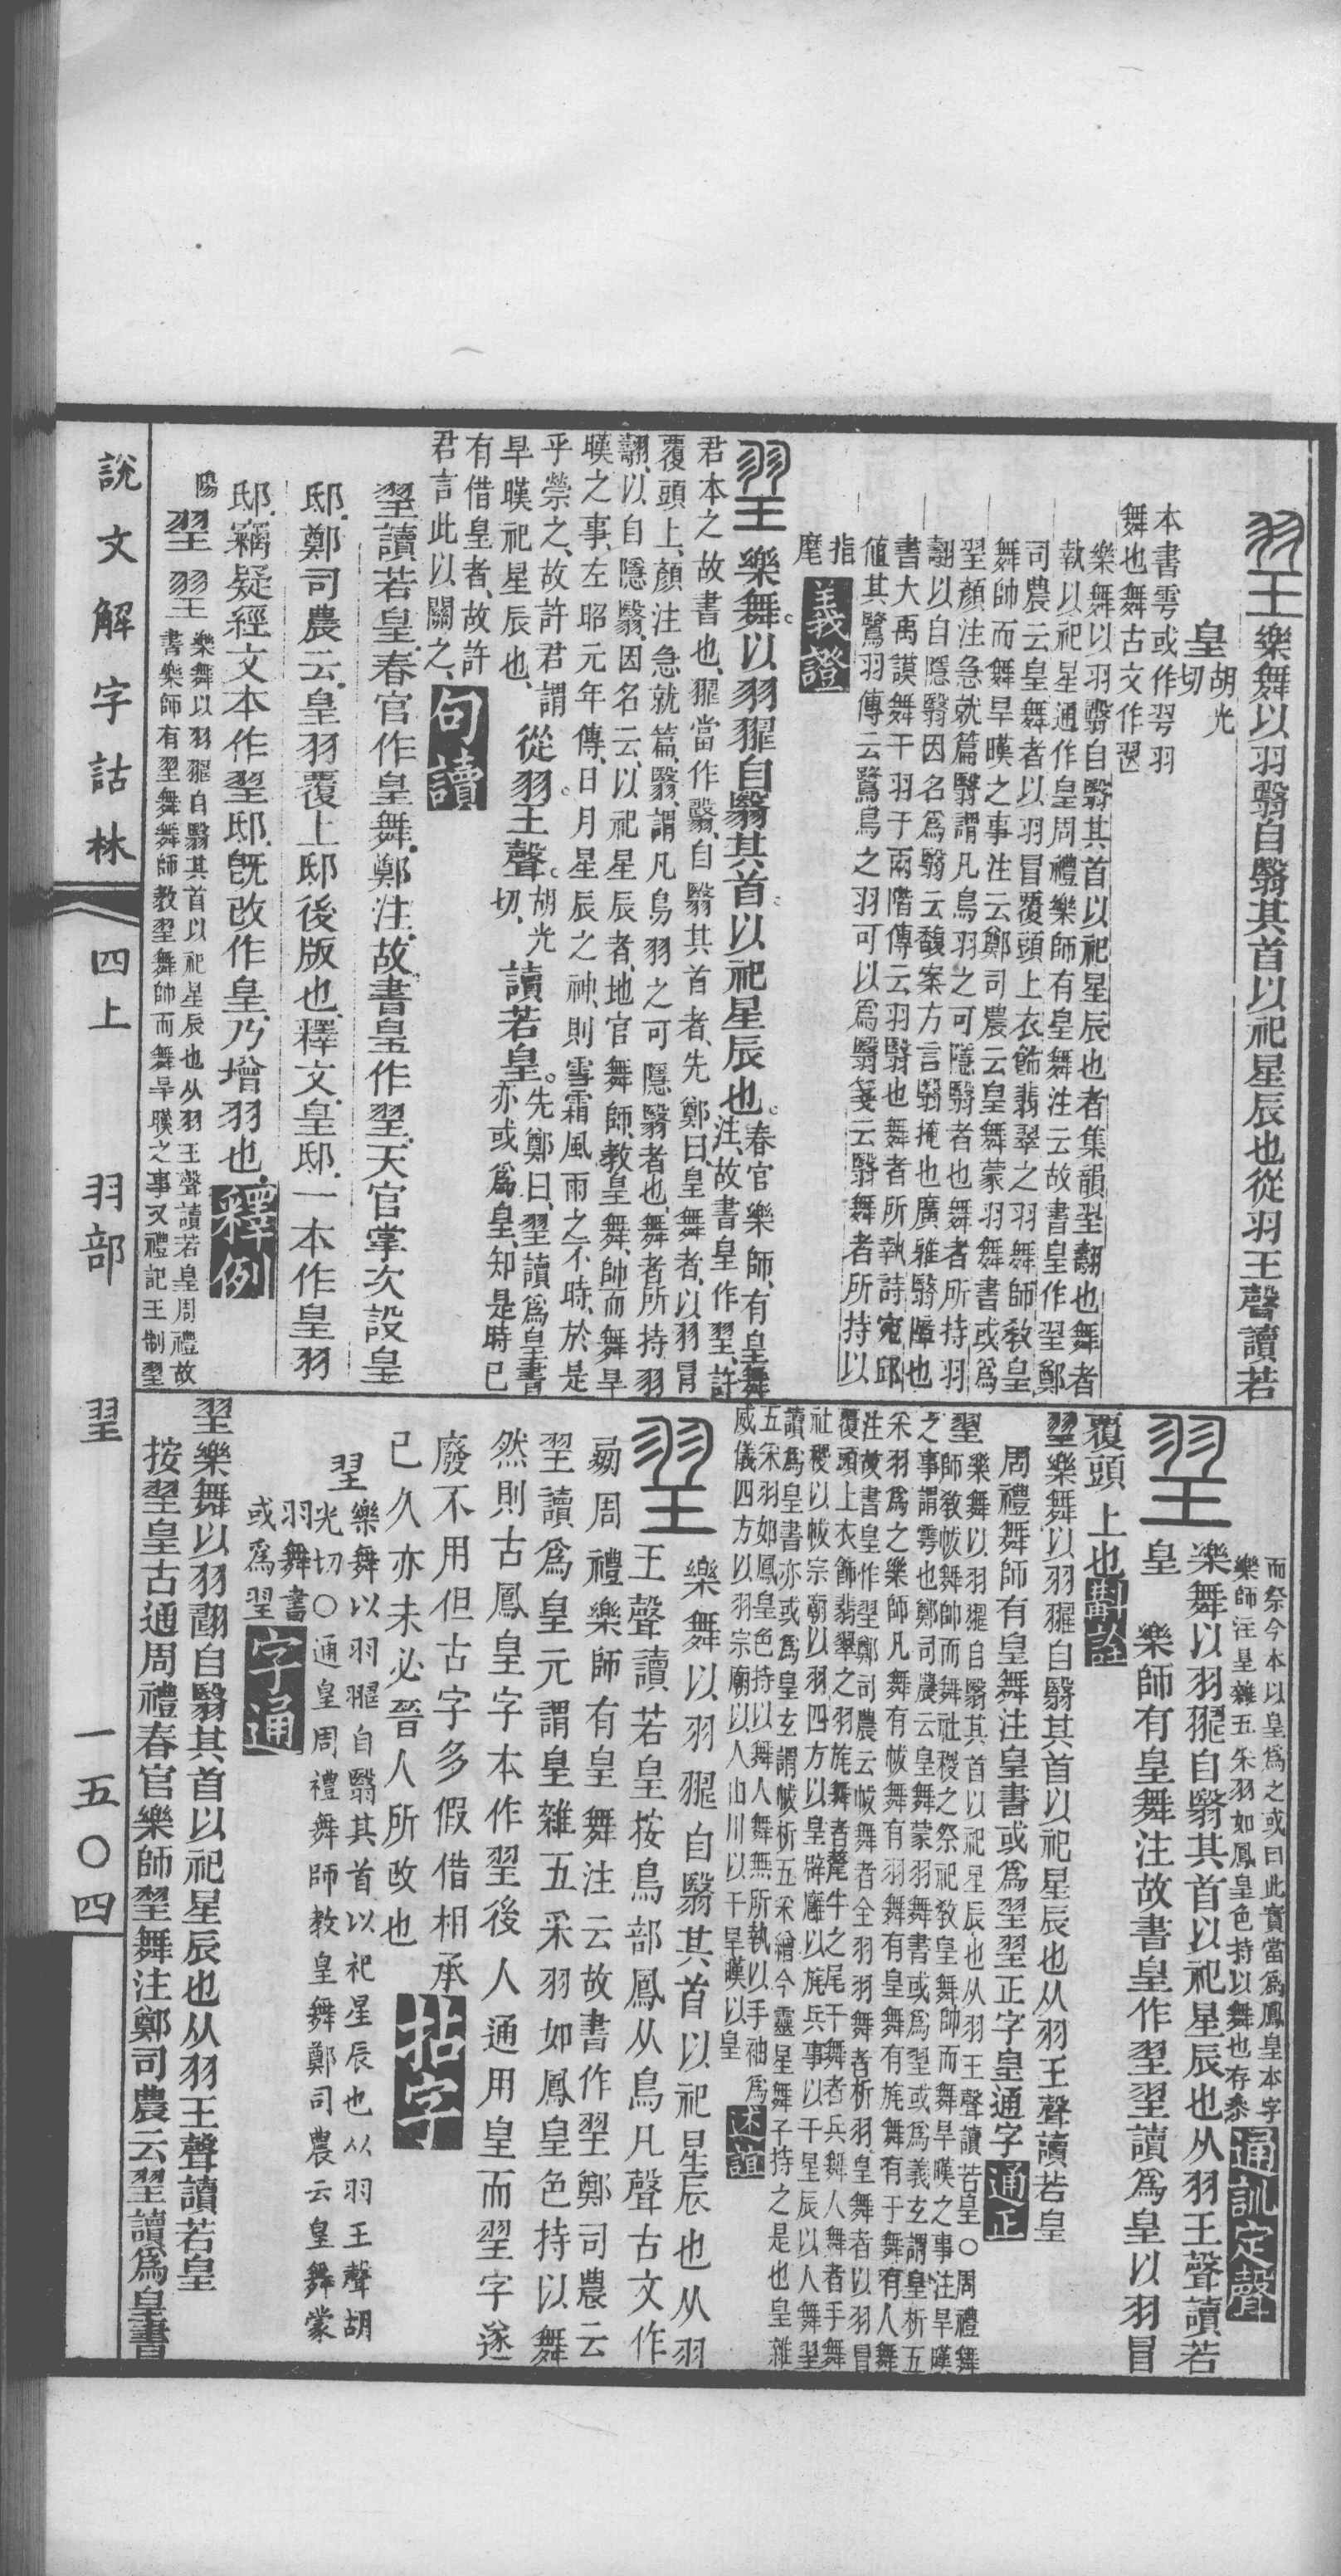 翌樂舞以羽翳自翳其首以祀星辰也從羽王聲讀若
皇胡光切
本書雩或作𦏻羽
舞也舞古文作𦐀
樂舞以羽翳自翳其首以祀星辰也者集韻翌翿也舞者
執以祀星通作皇周禮樂師有皇舞注云故書皇作翌鄭
司農云皇舞者以羽冒覆頭上衣飾翡翠之羽舞師敎皇
舞帥而舞旱暵之事注云鄭司農云皇舞蒙羽舞書或爲
翌顏注急就篇翳謂凡鳥羽之可隱翳者也舞者所持羽
翿以自隱翳因名爲翳云馥案方言翳掩也廣雅翳障也
書大禹謨舞干羽于兩階傳云羽翳也舞者所執詩宛邱
値其鷺羽傳云鷺鳥之羽可以爲翳箋云翳舞者所持以
指麾
義證
翌樂舞以羽𦒉自翳其首以祀星辰也春官樂師有皇舞注故書皇作翌許
君本之故書也𦒉當作翳自翳其首者先鄭曰皇舞者以羽冒
覆頭上顏注急就篇翳謂凡鳥羽之可隱翳者也舞者所持羽
翿以自隱翳因名云以祀星辰者地官舞師敎皇舞帥而舞旱
暵之事左昭元年傳日月星辰之神則雪霜風雨之不時於是
乎禜之故許君謂
旱暵祀星辰也從羽王聲胡光切讀若皇先鄭曰翌讀爲皇書亦或爲皇知是時已
有借皇者故許
君言此以關之
句讀
翌讀若皇春官作皇舞鄭注故書皇作翌天官掌次設皇
邸鄭司農云皇羽覆上邸後版也釋文皇邸一本作皇羽
邸竊疑經文本作翌邸旣改作皇乃增羽也
釋例
陽翌
翌樂舞以羽𦒉自翳其首以祀星辰也从羽王聲讀若皇周禮故
書樂師有翌舞舞師敎翌舞帥而舞旱暵之事又禮記王制翌
而祭今本以皇爲之或曰此實當爲鳳皇本字
樂師注皇雜五采羽如鳳皇色持以舞也存參
通訓定聲
翌樂舞以羽𦒉自翳其首以祀星辰也从羽王聲讀若
皇樂師有皇舞注故書皇作翌翌讀爲皇以羽冒
覆頭上也
斠詮
翌樂舞以羽𦒉自翳其首以祀星辰也从羽王聲讀若皇
周禮舞師有皇舞注皇書或爲翌翌正字皇通字
通正
翌樂舞以羽𦒉自翳其首以祀星辰也从羽王聲讀若皇○周禮舞
師敎帗舞帥而舞社稷之祭祀敎皇舞帥而舞旱暵之事注旱暵
之事謂雩也鄭司農云皇舞蒙羽舞書或爲翌或爲義玄謂皇析五
采羽爲之樂師凡舞有帗舞有羽舞有皇舞有旄舞有干舞有人舞
注故書皇作翌鄭司農云帗舞者全羽羽舞者析羽皇舞者以羽冒
覆頭上衣飾翡翠之羽旄舞者氂牛之尾干舞者兵舞人舞者手舞
社稷以帗宗廟以羽四方以皇辟廱以旄兵事以干星辰以人舞翌
讀爲皇書亦或爲皇玄謂帗析五采繒今靈星舞子持之是也皇雜
五采羽如鳳皇色持以舞人舞無所執以手袖爲
威儀四方以羽宗廟以人山川以干旱暵以皇
述誼
翌樂舞以羽𦒉自翳其首以祀星辰也从羽
王聲讀若皇按鳥部鳳从鳥凡聲古文作
朋周禮樂師有皇舞注云故書作翌鄭司農云
翌讀爲皇元謂皇雜五采羽如鳳皇色持以舞
然則古鳳皇字本作翌後人通用皇而翌字遂
廢不用但古字多假借相承
已久亦未必晉人所改也
拈字
翌樂舞以羽𦒉自翳其首以祀星辰也从羽王聲胡
光切○通皇周禮舞師敎皇舞鄭司農云皇舞蒙
羽舞書
或爲翌
字通
翌樂舞以羽翿自翳其首以祀星辰也从羽王聲讀若皇
按翌皇古通周禮春官樂師翌舞注鄭司農云翌讀爲皇書
說文解字詁林 四上 羽部 翌 一五〇四